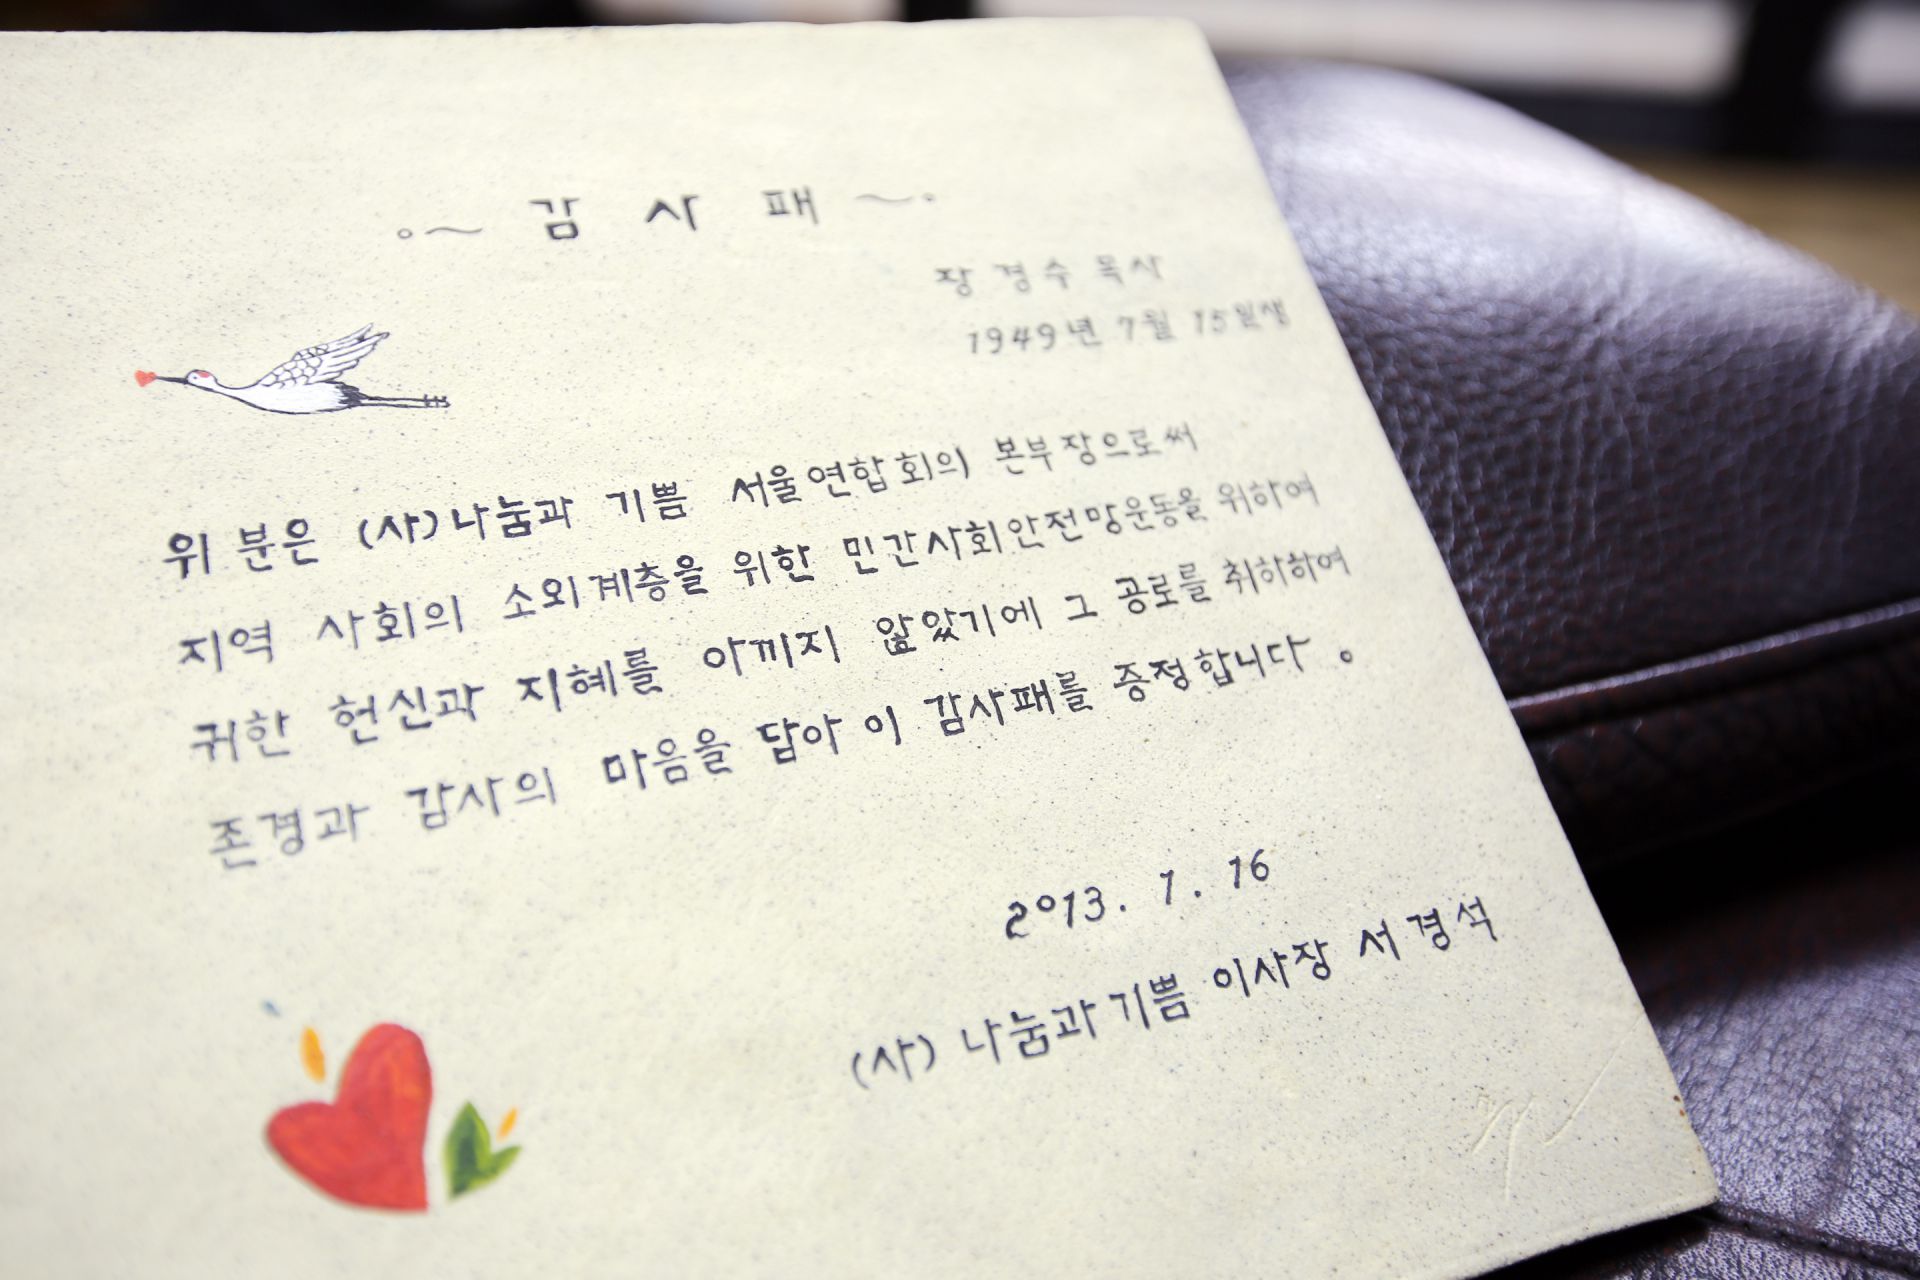 감 사 패
장 경 수 목사
1949년 7월 15일생
위 분은 (사)나눔과 기쁨 서울연합회의 본부장으로써
지역 사회의 소외계층을 위한 민간사회안전망운동을 위하여
귀한 헌신과 지혜를 아끼지 않았기에 그 공로를 취하하여
존경과 감사의 마음을 담아 이 감사패를 증정합니다.
2013. 1. 16
(사) 나눔과기쁨 이사장 서경석